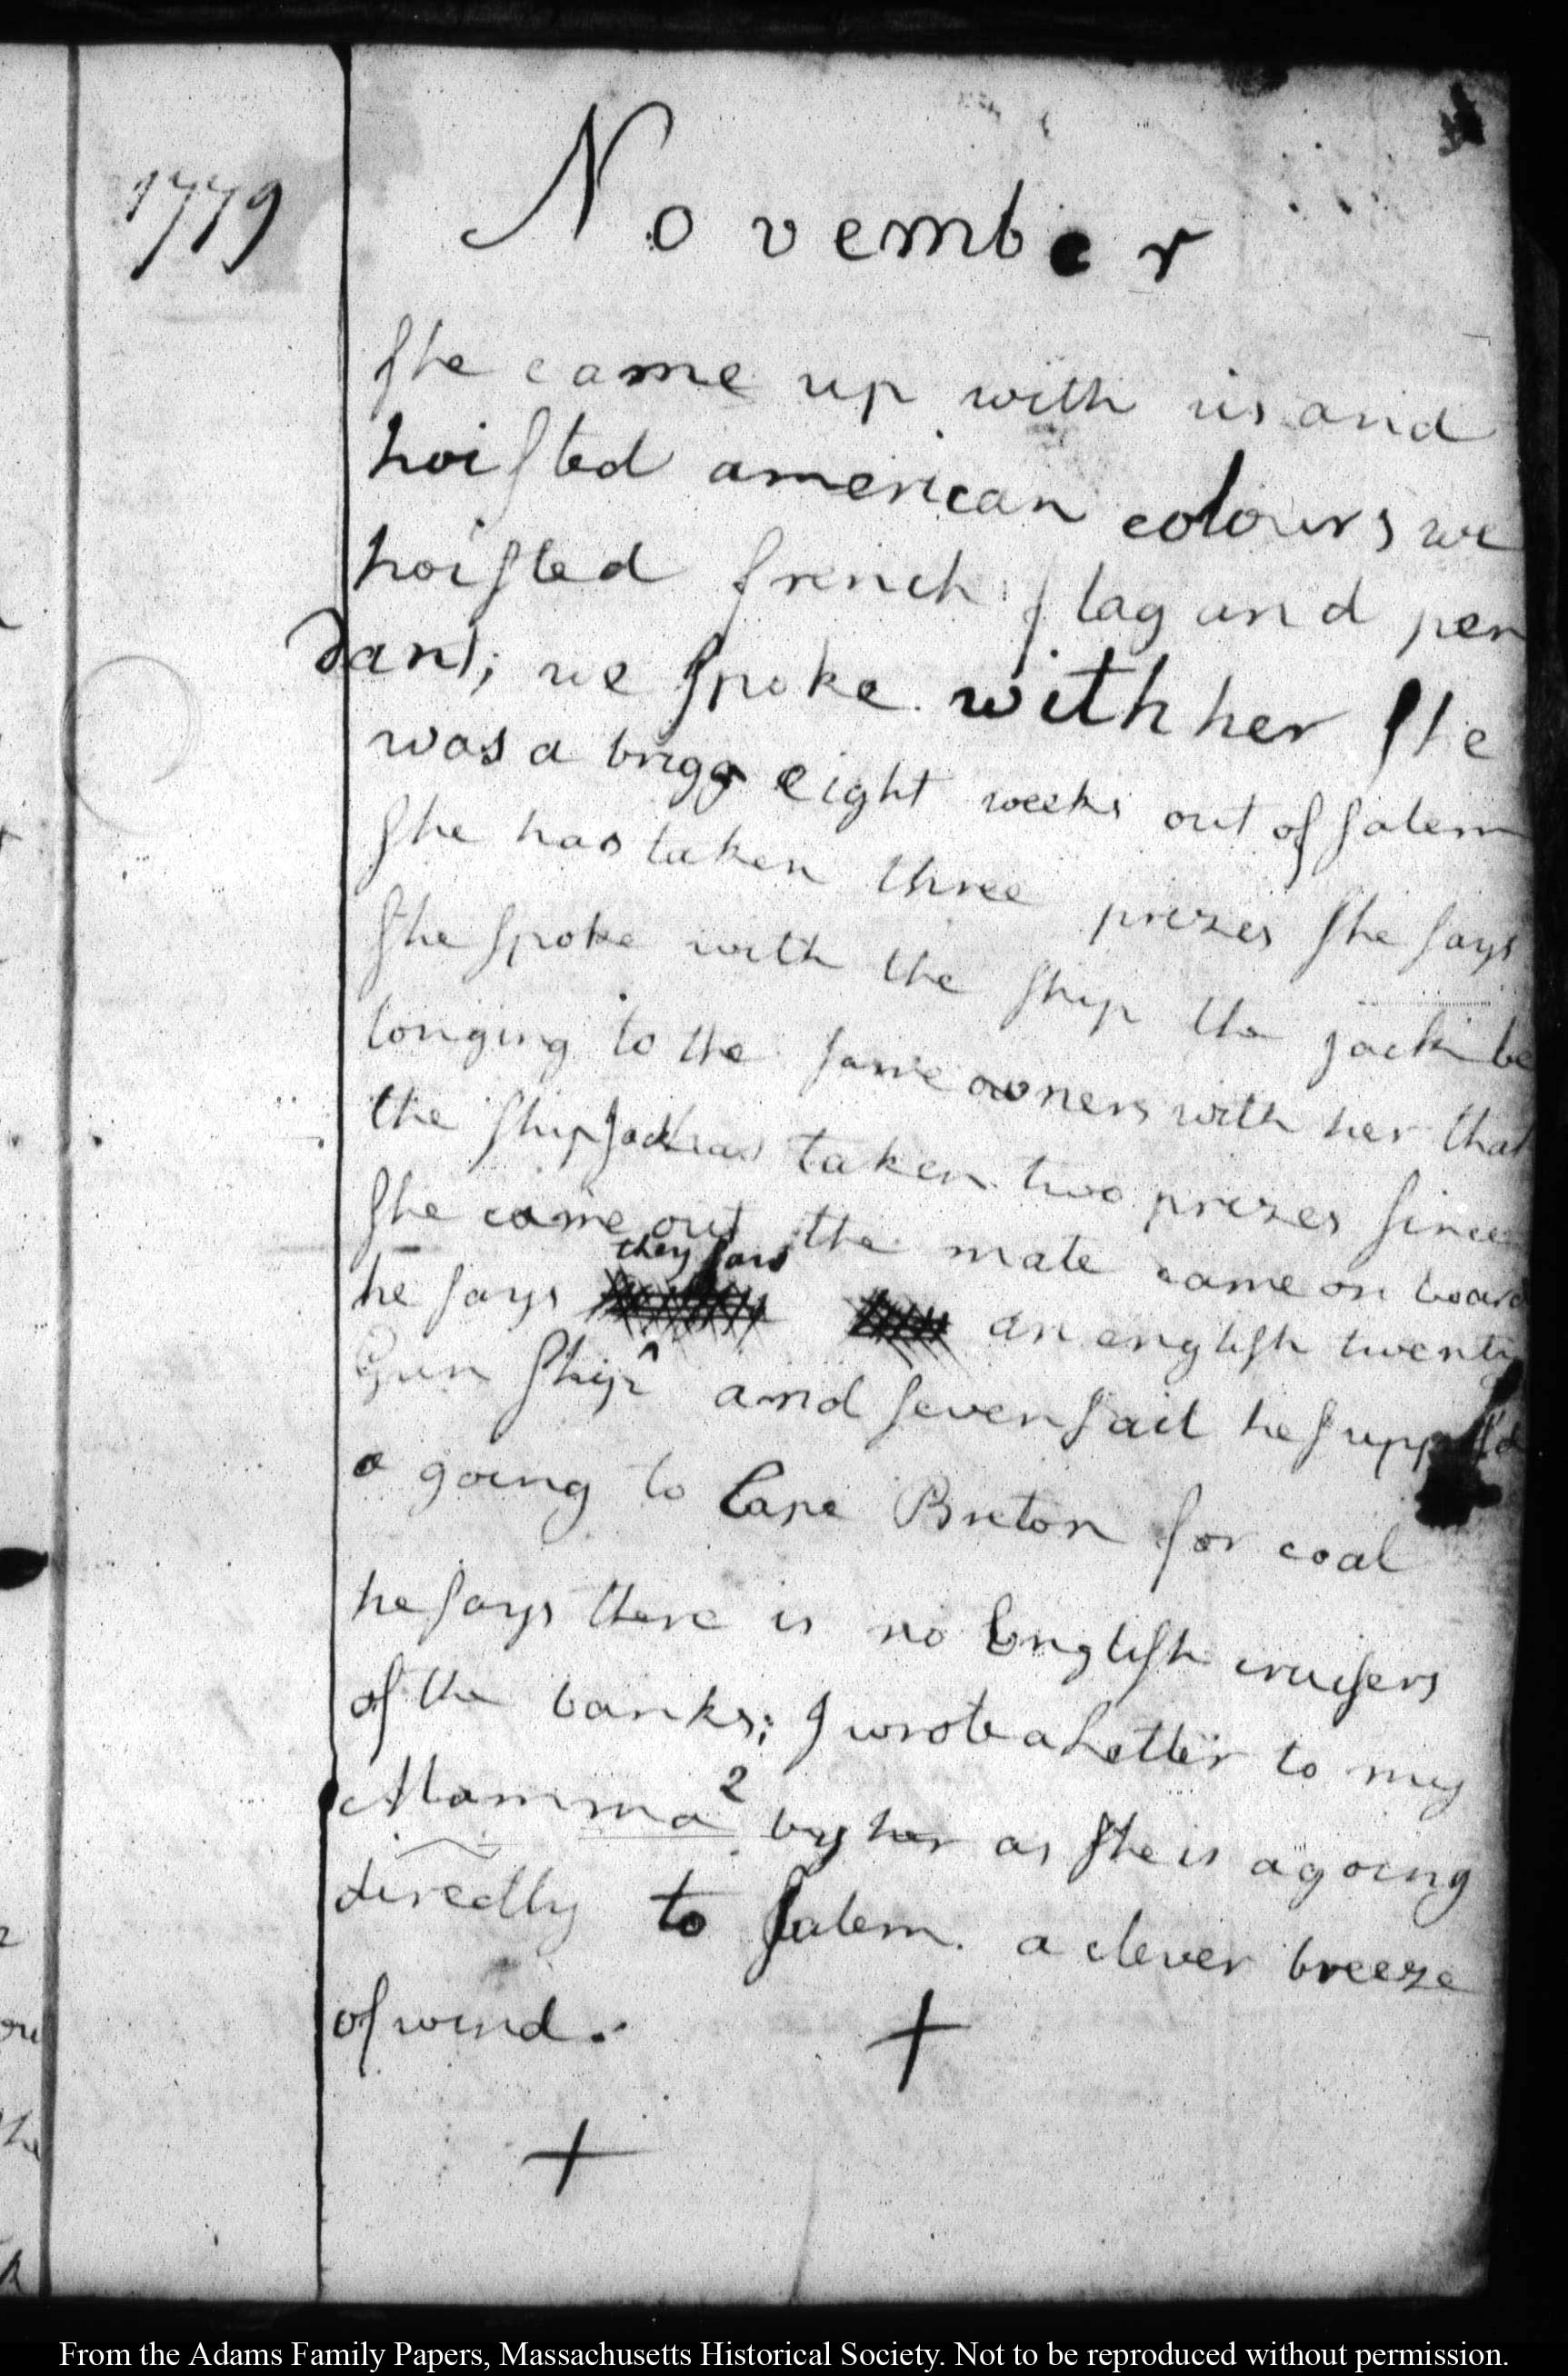 1779
November
She came up with us and
hoisted american colours we
hoisted french flag and pen
dant; we spoke with her She
was a brigg eight weeks out of Salem
She has taken three prizes She says
She spoke with the Ship the jack be
longing to the same owners with her that
the Ship Jack has taken two prizes Since
She came out the mate came on board
they saw
he says an english twenty
Gun Ship ^ and seven sail he suppos'd
a going to Cape Breton for coal
he says there is no English cruisers
of the banks; I wrote a Letter to my
Mamma 2 by her as She is a going
directly to Salem. a clever breeze
of wind.
+
+
From the Adams Family Papers, Massachusetts Historical Society. Not to be reproduced without permission.